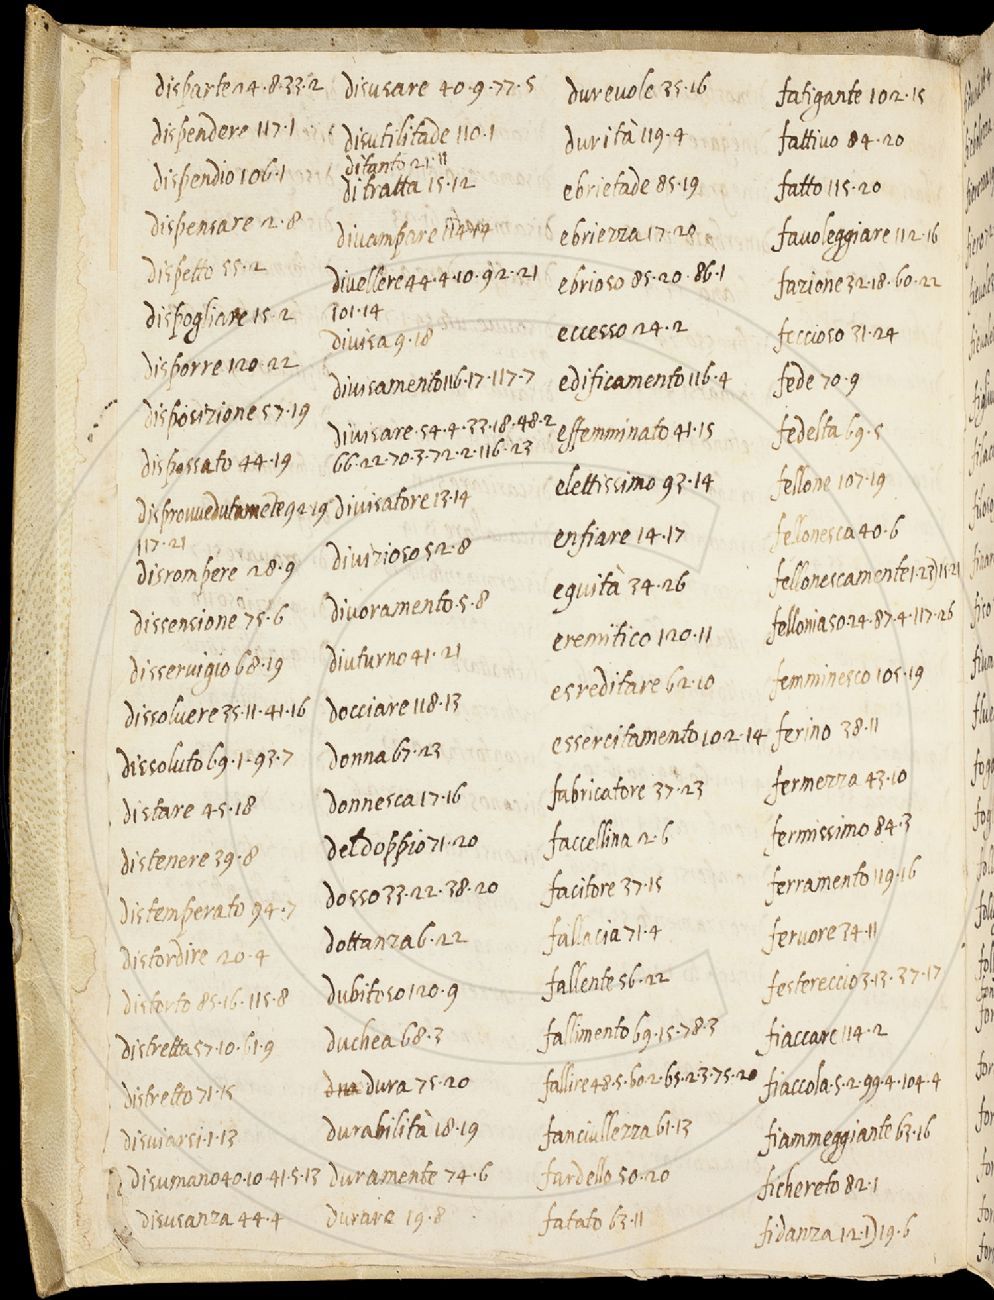 disparte 24·8·33·2
dispendere 117·1
dispendio 106·1
dispensare 2·8
dispetto 55·2
dispogliare 15·2
disporre 120·22
disposizione 57·19
dispossato 44·19
disprovvedutamẽte 92·19
117·21
disrompere 28·9
dissensione 75·6
disservigio 68·19
dissoluere 35·11·41·16
dissoluto 69·1·93·7
distare 45·18
distenere 39·8
distemperato 94·7
distordire 20·4
distorto 85·16·115·8
distretta 57·10·61·9
distretto 71·15
disviarsi·1·13
disumano 40·10·41·5·13
disusanza 44·4
disusare 40·9·77·5
disutilitade 110·1
ditanto 21·11
ditratta 15·12
divampare 114·14
divellere 44·4·10·92·21
101·14
divisa 9·18
divisamento 116·17·117·7
divisare·54·4·33·18·48·2
66·22·70·3·72·2·116·23
divisatore 13·14
divizioso 52·8
divoramento·5·8
diuturno 41·21
docciare 118·13
donna 67·23
donnesca 17·16
del doppio 71·20
dosso 33·22·38·20
dottanza 6·22
dubitoso 120·9
duchea 68·3
dura 75·20
durabilità 18·19
duramente 74·6
durare 19·8
durevole 35·16
durità 119·4
ebrietade 85·19
ebriezza 17·20
ebrioso 85·20·86·1
eccesso 24·2
edificamento 116·4
effemminato 41·15
elettissimo 93·14
enfiare 14·17
equità 34·26
eremitico 120·11
esreditare 62·10
essercitamento 102·14
fabricatore 37·23
faccellina 2·6
facitore 37·15
fallacia 71·4
fallente 56·22
fallimento 69·15·78·3
fallire 48·5·60·2·65·23·75·20
fanciullezza 61·13
fardello 50·20
fatato 63·11
fatigante 102·15
fattivo 84·20
fatto 115·20
favoleggiare 112·16
fazione 32·18·60·22
feccioso 31·24
fede 70·9
fedelta 69·5
fellone 107·19
fellonesca 40·6
fellonescamente 1·23)15·21
fellonia 50·24·87·4·117·26
femminesco 105·19
ferino 38·11
fermezza 43·10
fermissimo 84·3
ferramento 119·16
fervore 34·11
festereccio 3·13·37·17
fiaccare 114·2
fiaccola·5·2·99·4·104·4
fiammeggiante 63·16
fichereto 82·1
fidanza 12·1)19·6